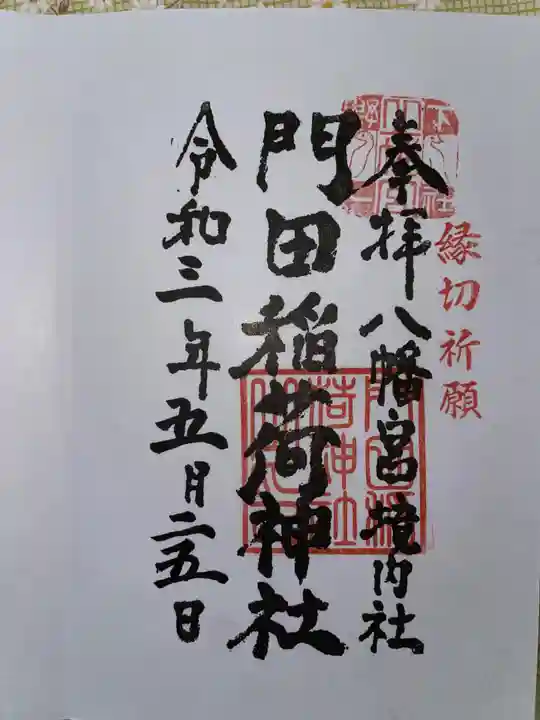 縁切祈願
奉拝八幡宮境内社
門田稲荷神社
令和三年五月二五日